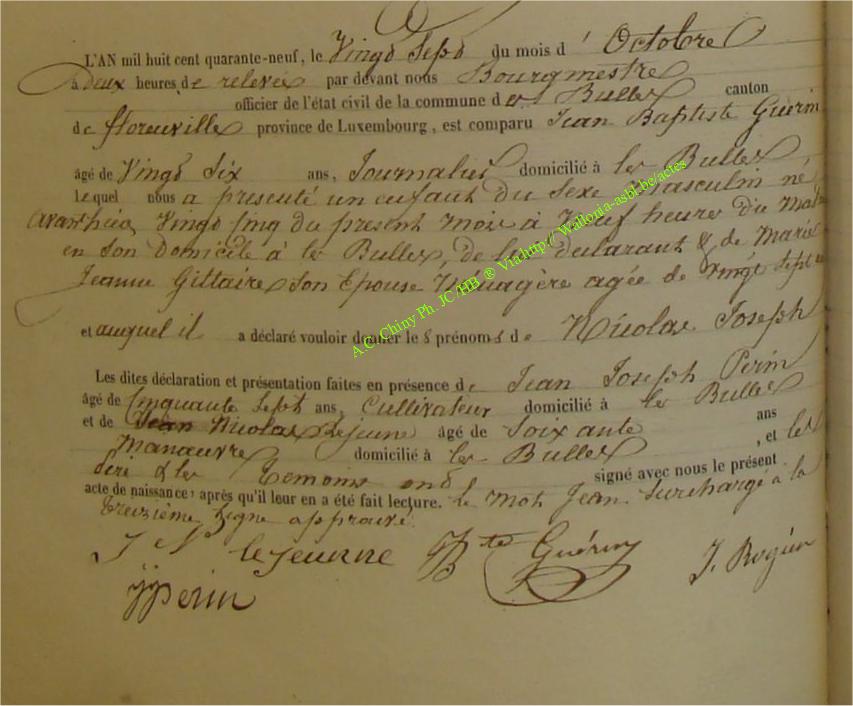 L'AN mil huit cent quarante-neuf, le Vingt Sept du mois d' Octobre
à deux heures de relevée par devant nous Bourgmestre
officier de l'état civil de la commune des Bulles canton
de florenville province de Luxembourg, est comparu Jean Baptiste Guérin
âgé de Vingt Six ans, Journalier domicilié à les Bulles
Lequel nous a presenté un enfant du Sexe Masculin né
avant hier Vingt Cinq du present mois à Neuf heures du Matin
en Son Domicile à les Bulles, de lui déclarant & de Marie
Jeanne Giltaire, Son Epouse Ménagère agée de Vingt Sept
et auquel il a déclaré vouloir donner les prénoms de Nicolas Joseph
Les dites déclaration et présentation faites en présence de Jean Joseph Perin
âgé de Cinquante Sept ans, Cultivateur domicilié à les Bulles
et de Jean Nicolas Lejeune âgé de Soixante ans
Manœuvre domicilié à les Bulles, et les
père & les Temoins ont signé avec nous le présent
acte de naissance, après qu'il leur en a été fait lecture. le mot Jean Surchargé à la
treizième ligne approuvé.
J N lejeunne JBte Guérin J. Rogier
JJPerin
A.C. Chiny Ph. JC/HB ® Via http:// Wallonia-asbl.be/actes